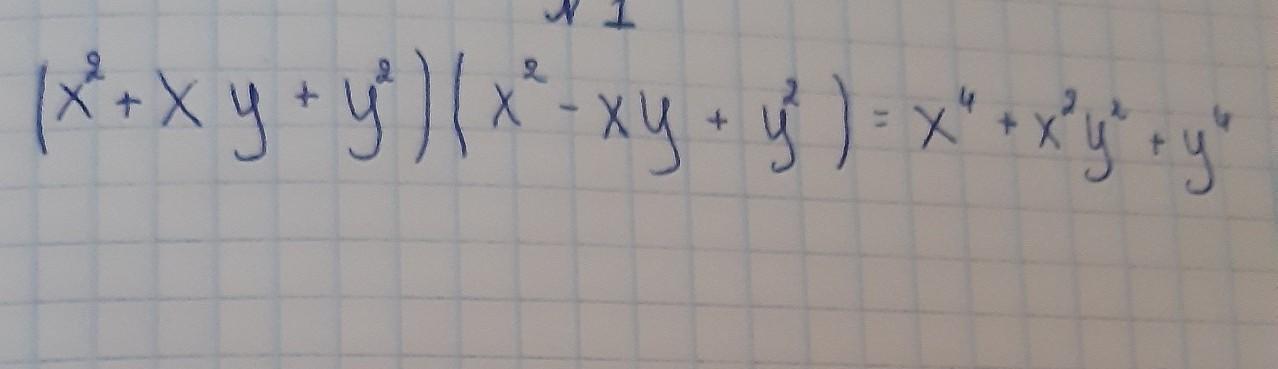 № 1
(x² + xy + y²)(x² - xy + y²) = x⁴ + x²y² + y⁴